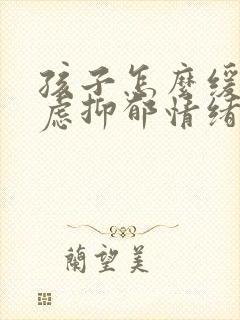 孩子怎麼缓
虑抑郁情绪
蘭望美